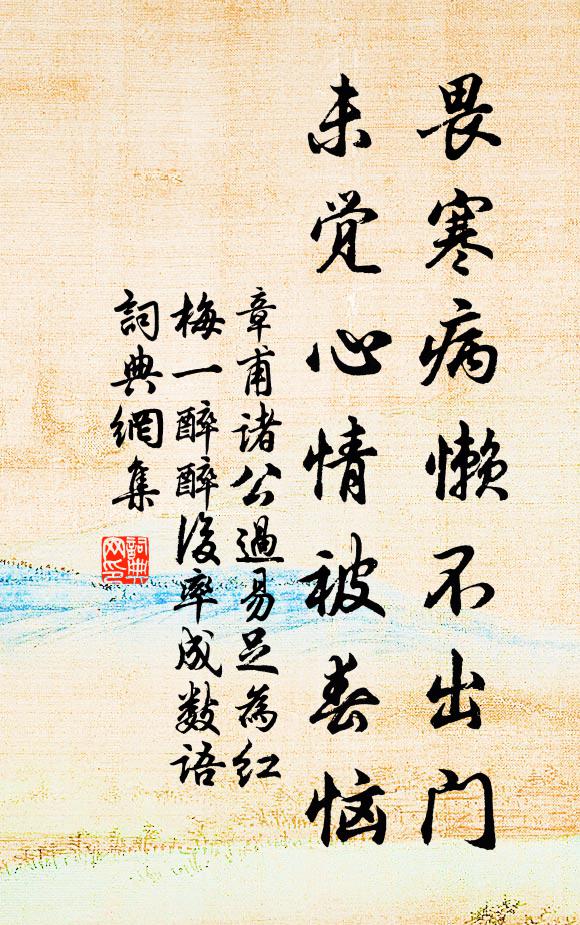 畏寒病懒不出门
未觉心情被春恼
章甫诸公過易足為红
梅一醉醉後率成数语
詞典網集
詞典
网印